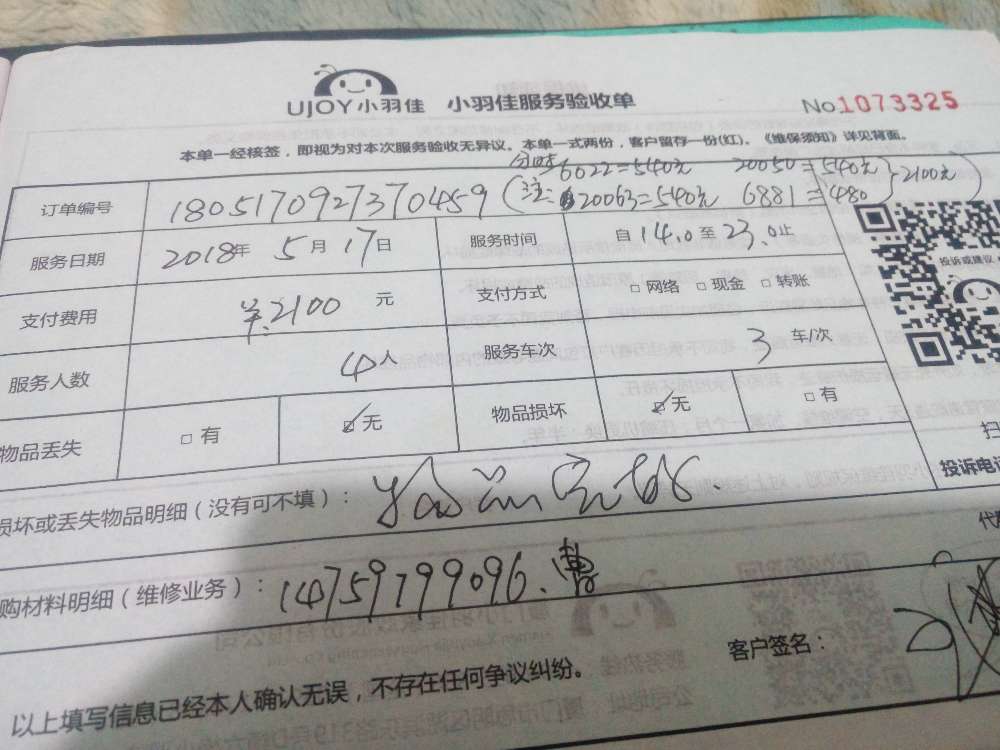 UJOY小羽佳 小羽佳服务验收单 No.1073325
本单一经核签，即视为对本次服务验收无异议。本单一式两份，客户留存一份(红)。《维保须知》详见背面。
订单编号 180517092737 0459 (注: 6022=540元 20050=540元
20063=540元 6881=480 }2100元
服务日期 2018年 5月17日 服务时间 自14.0至23.0止
支付费用 ¥.2100 元 支付方式 □ 网络 □ 现金 □ 转账
服务人数 4人 服务车次 3 车/次
物品丢失 □ 有 ☑ 无 物品损坏 ☑ 无 □ 有
投诉或建议
扫
投诉电话
损坏或丢失物品明细（没有可不填）： 物品完好.
购材料明细（维修业务）： 14759799096.曹
客户签名：
以上填写信息已经本人确认无误，不存在任何争议纠纷。